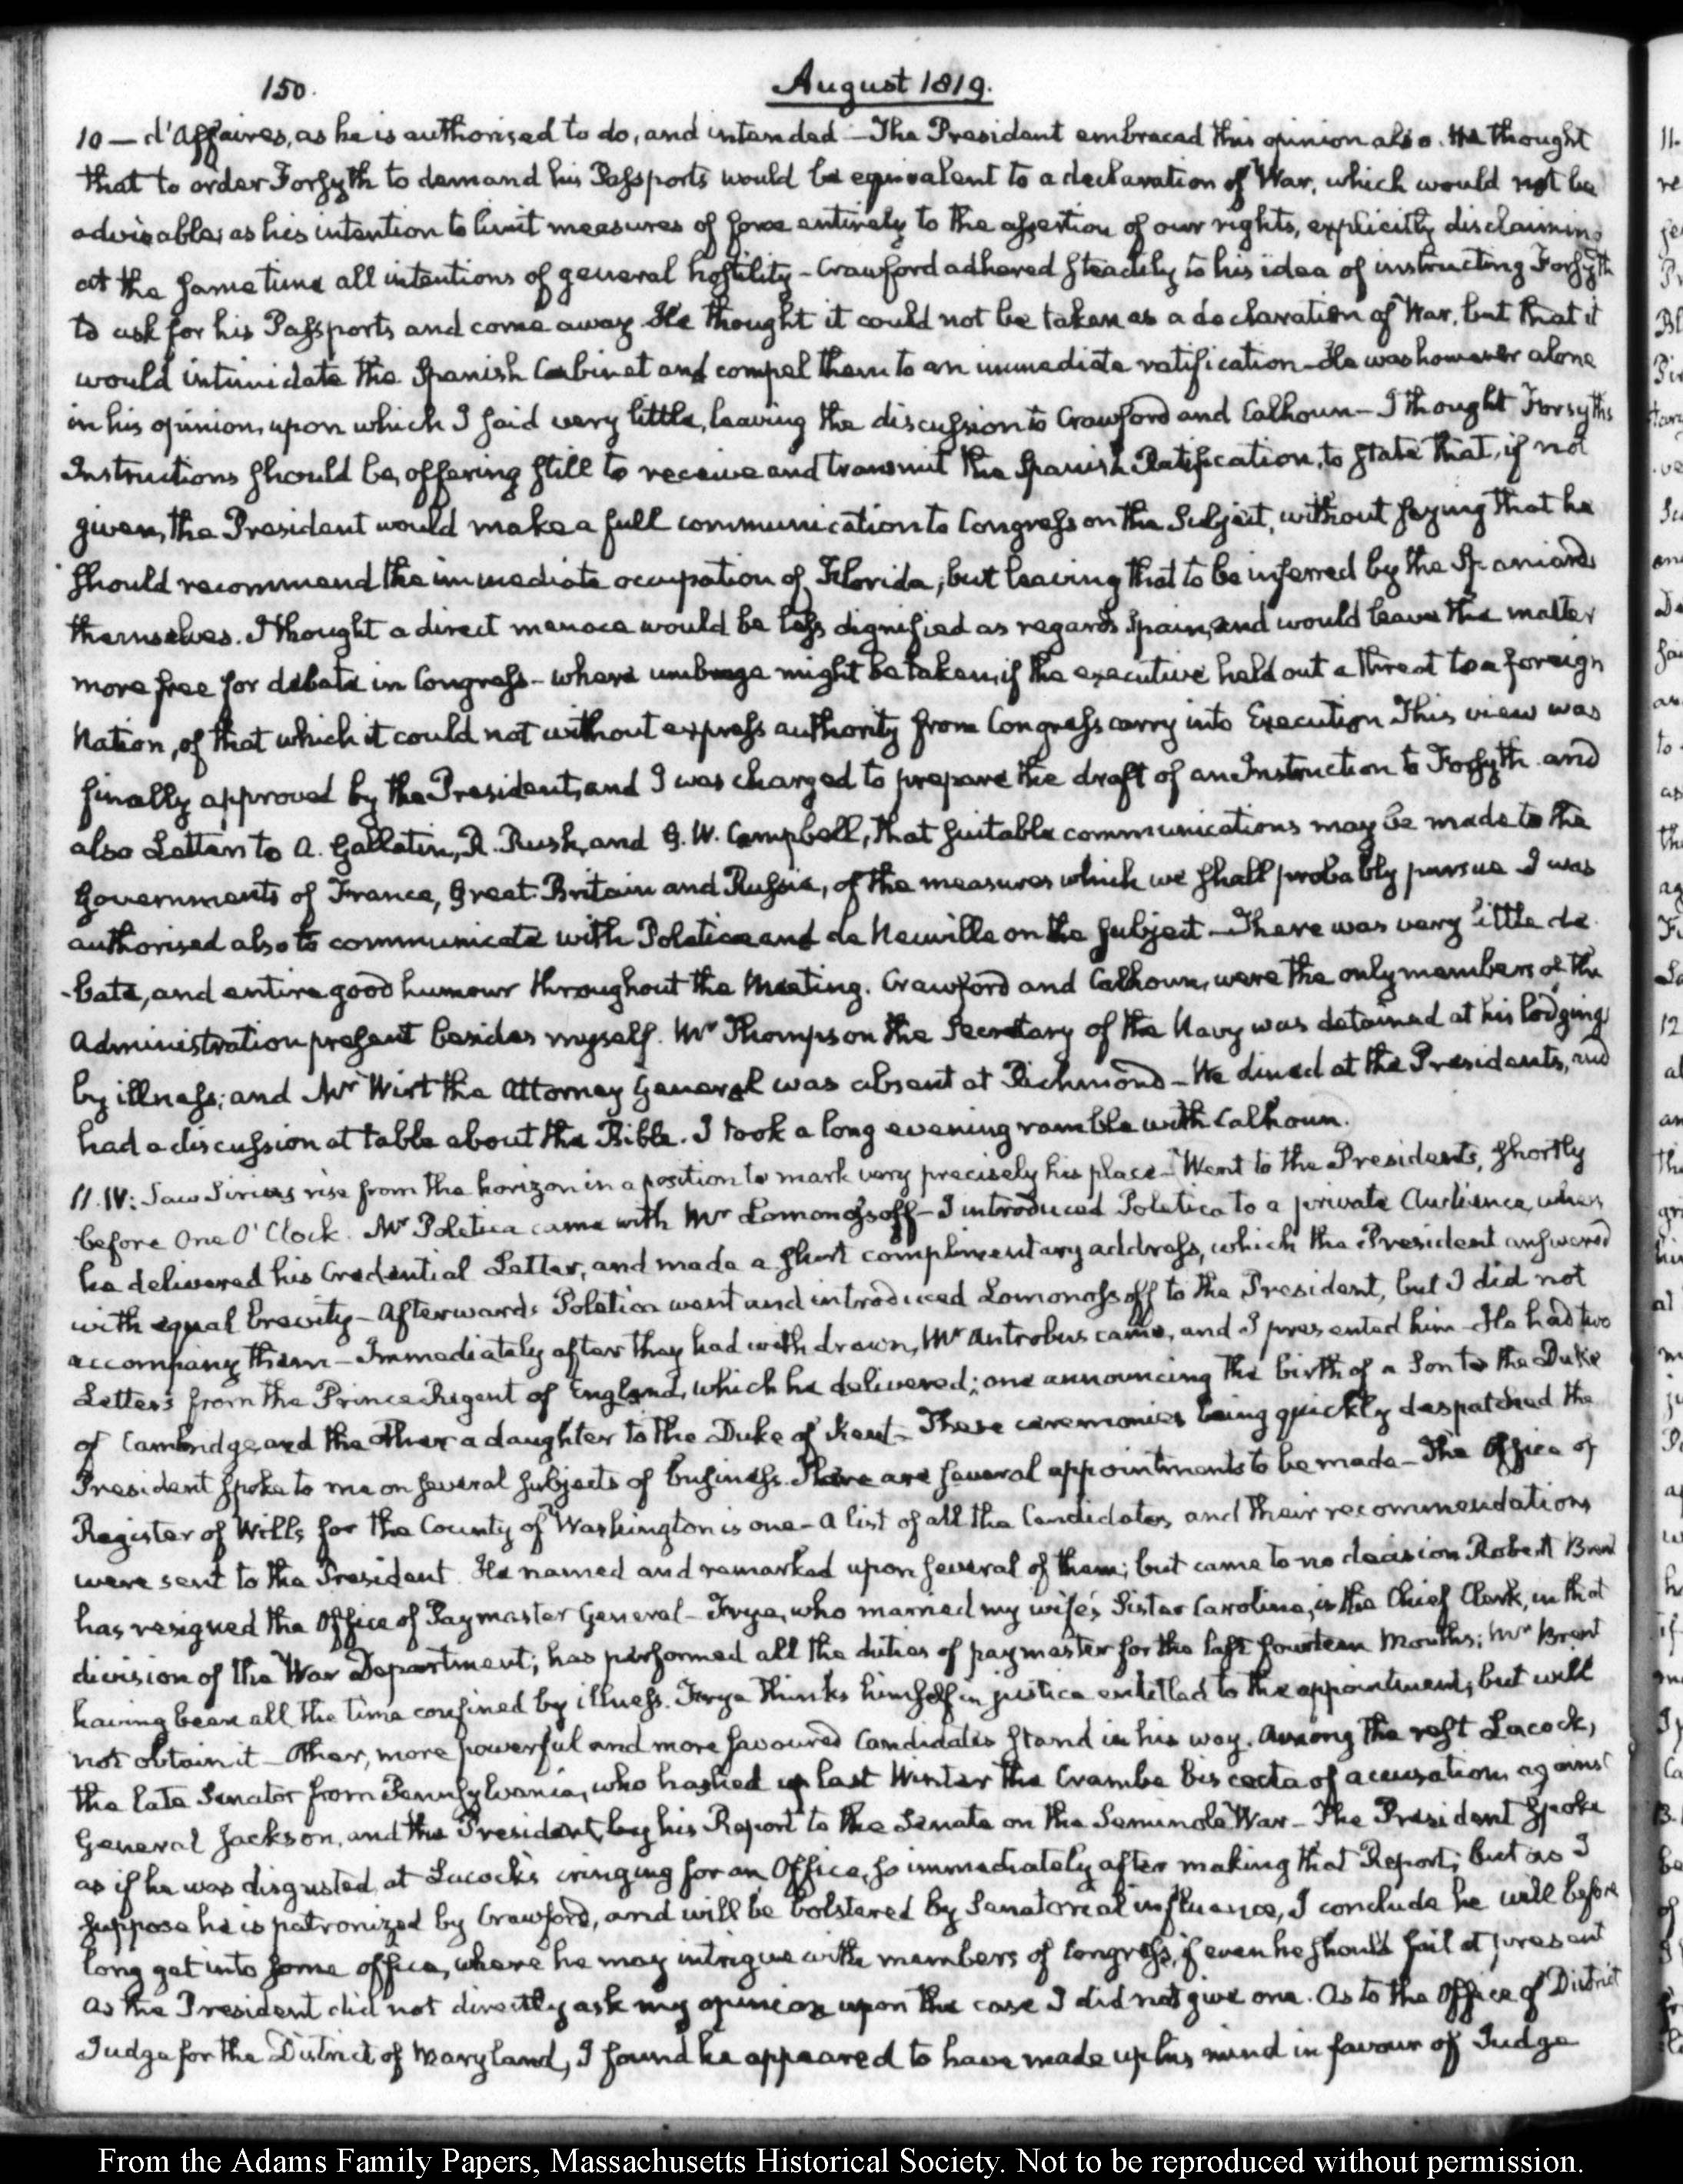 150.
August 1819.
10 — d'Affaires, as he is authorised to do, and intended — The President embraced this opinion also. He thought
that to order Forsyth to demand his Passports would be equivalent to a declaration of War, which would not be
advisable; as his intention to limit measures of force entirely to the assertion of our rights, explicitly disclaiming
at the same time all intentions of general hostility — Crawford adhered steadily to his idea of instructing Forsyth
to ask for his Passports and come away. He thought it could not be taken as a declaration of War, but that it
would intimidate the Spanish Cabinet and compel them to an immediate ratification — He was however alone
in his opinion, upon which I said very little, leaving the discussion to Crawford and Calhoun — I thought Forsyth's
Instructions should be, offering still to receive and transmit the Spanish Ratification, to state that, if not
given, the President would make a full communication to Congress on the Subject, without saying that he
should recommend the immediate occupation of Florida, but leaving that to be inferred by the Spaniards
themselves. I thought a direct menace would be less dignified as regards Spain, and would leave the matter
more free for debate in Congress — where umbrage might be taken, if the executive held out a threat to a foreign
Nation, of that which it could not without express authority from Congress carry into Execution This view was
finally approved by the President, and I was charged to prepare the draft of an Instruction to Forsyth and
also Letters to A. Gallatin, R. Rush, and G. W. Campbell, that suitable communications may be made to the
Governments of France, Great-Britain and Russia, of the measures which we shall probably pursue I was
authorised also to communicate with Poletica and de Neuville on the subject — There was very little de
-bate, and entire good humour throughout the Meeting. Crawford and Calhoun, were the only members of the
Administration present besides myself. Mr Thompson the Secretary of the Navy was detained at his lodgings
by illness; and Mr Wirt the Attorney General was absent at Richmond — We dined at the Presidents, and
had a discussion at table about the Bible. I took a long evening ramble with Calhoun.
11. IV: Saw Sirius rise from the horizon in a position to mark very precisely his place — Went to the Presidents, shortly
before One O'Clock. Mr Poletica came with Mr Lomonossoff — I introduced Poletica to a private Audience, when
he delivered his Credential Letter, and made a short complimentary address, which the President answered
with equal brevity — Afterwards Poletica went and introduced Lomonossoff to the President, but I did not
accompany them — Immediately after they had withdrawn, Mr Antrobus came, and I presented him — He had two
Letters from the Prince Regent of England, which he delivered; one announcing the birth of a Son to the Duke
of Cambridge, and the other a daughter to the Duke of Kent — These ceremonies being quickly despatched the
President spoke to me on several subjects of business. There are several appointments to be made — The Office of
Register of Wills for the County of Washington is one — A list of all the Candidates, and their recommendations
were sent to the President. He named and remarked upon several of them; but came to no decision Robert Brent
has resigned the Office of Paymaster General — Frye, who married my wife's Sister Caroline, is the Chief Clerk, in that
division of the War Department; has performed all the duties of paymaster for the last fourteen Months; Mr Brent
having been all the time confined by illness. Frye thinks himself in justice entitled to the appointment; but will
not obtain it — Other, more powerful and more favoured Candidates stand in his way. Among the rest Lacock,
the late Senator from Pennsylvania, who hashed up last Winter the Crambe bis cocta of accusations against
General Jackson, and the President, by his Report to the Senate on the Seminole War — The President spoke
as if he was disgusted at Lacock's cringing for an Office, so immediately after making that Report; but as I
suppose he is patronized by Crawford, and will be bolstered by Senatorial influence, I conclude he will before
long get into some office, where he may intrigue with members of Congress, if even he should fail at present
As the President did not directly ask my opinion upon the case I did not give one. As to the Office of District
Judge for the District of Maryland, I found he appeared to have made up his mind in favour of Judge
From the Adams Family Papers, Massachusetts Historical Society. Not to be reproduced without permission.